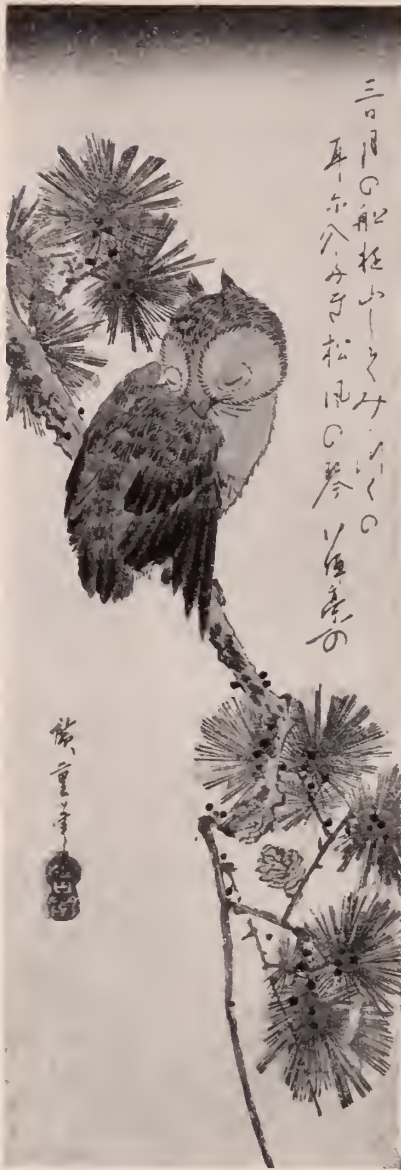 三日月の船遊山してみゝつくの
耳に入たき松風の琴
廣重筆